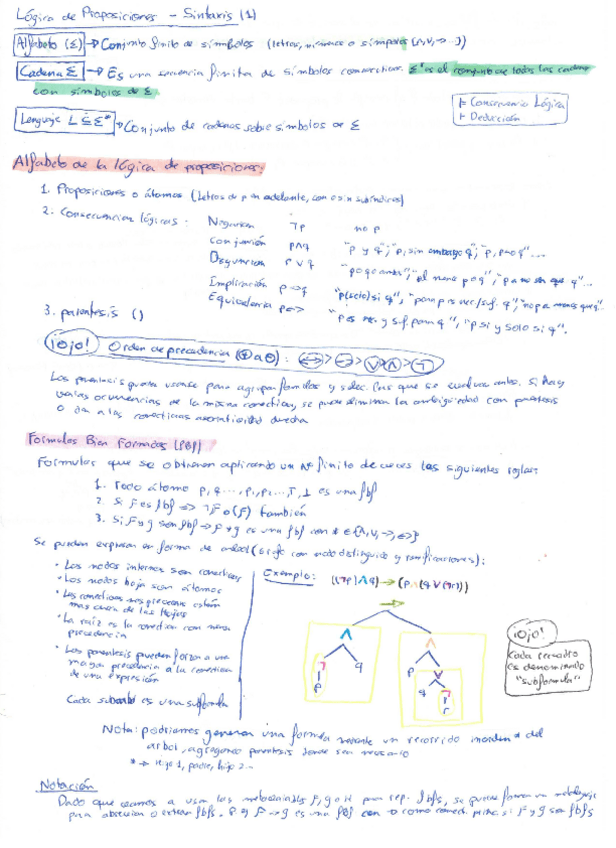 Lógica de Proposiciones - Sintaxis (1)
Alfabeto (Σ) → Conjunto finito de símbolos (letras, números o símbolos (∧,∨,→...))
Cadena Σ → Es una secuencia finita de símbolos consecutivos. Σ* es el conjunto de todas las cadenas
con símbolos de Σ
⊨ Consecuencia Lógica
⊢ Deducción
Lenguaje L ⊆ Σ* → Conjunto de cadenas sobre símbolos de Σ
Alfabeto de la lógica de proposiciones:
1. Proposiciones o átomos (Letras de p en adelante, con o sin subíndices)
2. Consecuencias lógicas:
Negación ¬p no p
Conjunción p∧q "p y q"; "p, sin embargo q"; "p, pero q"...
Disyunción p ∨ q
Implicación p→q "p (solo) si q",
Equivalencia p↔ "p si y solo si q".
3. paréntesis ()
¡Ojo! Orden de precedencia (⊕ a ⊖): ↔ > → > ∨ ∧ > ¬
Los paréntesis pueden usarse para agrupar fórmulas y selec. las que se evalúan antes. Si hay
varias ocurrencias de la misma conectiva, se puede eliminar la ambigüedad con paréntesis
o da a las conectivas asociatividad derecha
Fórmulas Bien Formadas (FBF)
Fórmulas que se obtienen aplicando un nº finito de veces las siguientes reglas:
1. Todo átomo p, q ..., p₁, p₂... T, ⊥ es una fbf
2. Si F es fbf => ¬F o (F) también
3. Si F y G son fbf → F * G es una fbf con * ∈ {∧,∨,→,↔}
Se pueden expresar en forma de árbol (grafo con nodo distinguido y ramificaciones):
· Los nodos internos son conectivas
· Los nodos hoja son átomos
· Las conectivas más precedentes están
más cerca de las hojas
· La raíz es la conectiva con menor
precedencia
· Los paréntesis pueden forzar a una
mayor precedencia a la conectiva
de una expresión
Cada subárbol es una subfórmula
Ejemplo: ((¬p)∧q) → (p∧(q∨(¬r)))
→
∧ ∧
¬ q p ∨
p q ¬
r
¡Ojo!
Cada recuadro
es denominado
"subfórmula"
Nota: podríamos generar una fórmula mediante un recorrido inorden* del
árbol, agregando paréntesis donde sea necesario
* → Hijo 1, padre, hijo 2
Notación
Dado que vamos a usar las metavariables F, G o H para rep. fbfs, se puede formar un metalenguaje
para abreviar o extraer fbfs. F → G es una fbf con → como conect. princ. si F y G son fbfs